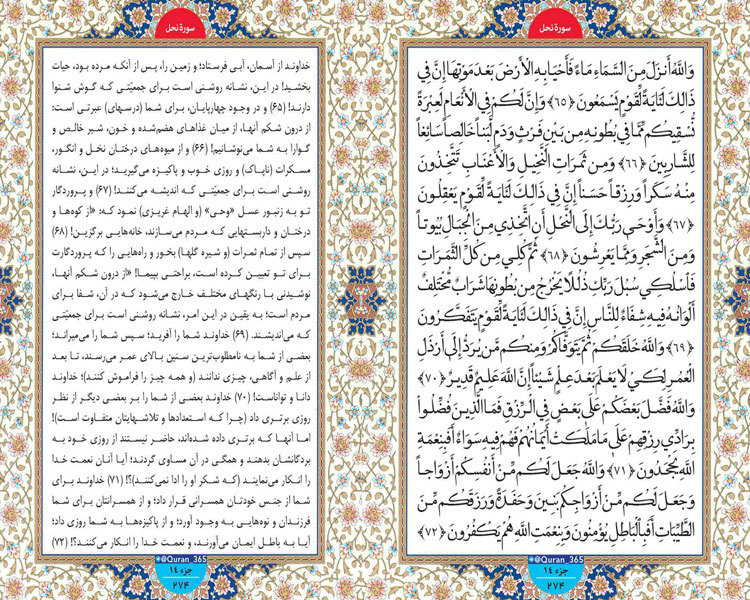 سورهٔ نحل
وَاللَّهُ أَنزَلَ مِنَ السَّمَاءِ مَاءً فَأَحْيَا بِهِ الْأَرْضَ بَعْدَ مَوْتِهَا إِنَّ فِي
ذَٰلِكَ لَآيَةً لِّقَوْمٍ يَسْمَعُونَ ﴿٦٥﴾ وَإِنَّ لَكُمْ فِي الْأَنْعَامِ لَعِبْرَةً
نُّسْقِيكُم مِّمَّا فِي بُطُونِهِ مِن بَيْنِ فَرْثٍ وَدَمٍ لَّبَنًا خَالِصًا سَائِغًا
لِّلشَّارِبِينَ ﴿٦٦﴾ وَمِن ثَمَرَاتِ النَّخِيلِ وَالْأَعْنَابِ تَتَّخِذُونَ
مِنْهُ سَكَرًا وَرِزْقًا حَسَنًا إِنَّ فِي ذَٰلِكَ لَآيَةً لِّقَوْمٍ يَعْقِلُونَ
﴿٦٧﴾ وَأَوْحَىٰ رَبُّكَ إِلَى النَّحْلِ أَنِ اتَّخِذِي مِنَ الْجِبَالِ بُيُوتًا
وَمِنَ الشَّجَرِ وَمِمَّا يَعْرِشُونَ ﴿٦٨﴾ ثُمَّ كُلِي مِن كُلِّ الثَّمَرَاتِ
فَاسْلُكِي سُبُلَ رَبِّكِ ذُلُلًا يَخْرُجُ مِن بُطُونِهَا شَرَابٌ مُّخْتَلِفٌ
أَلْوَانُهُ فِيهِ شِفَاءٌ لِّلنَّاسِ إِنَّ فِي ذَٰلِكَ لَآيَةً لِّقَوْمٍ يَتَفَكَّرُونَ
﴿٦٩﴾ وَاللَّهُ خَلَقَكُمْ ثُمَّ يَتَوَفَّاكُمْ وَمِنكُم مَّن يُرَدُّ إِلَىٰ أَرْذَلِ
الْعُمُرِ لِكَيْ لَا يَعْلَمَ بَعْدَ عِلْمٍ شَيْئًا إِنَّ اللَّهَ عَلِيمٌ قَدِيرٌ ﴿٧٠﴾
وَاللَّهُ فَضَّلَ بَعْضَكُمْ عَلَىٰ بَعْضٍ فِي الرِّزْقِ فَمَا الَّذِينَ فُضِّلُوا
بِرَادِّي رِزْقِهِمْ عَلَىٰ مَا مَلَكَتْ أَيْمَانُهُمْ فَهُمْ فِيهِ سَوَاءٌ أَفَبِنِعْمَةِ
اللَّهِ يَجْحَدُونَ ﴿٧١﴾ وَاللَّهُ جَعَلَ لَكُم مِّنْ أَنفُسِكُمْ أَزْوَاجًا
وَجَعَلَ لَكُم مِّنْ أَزْوَاجِكُم بَنِينَ وَحَفَدَةً وَرَزَقَكُم مِّنَ
الطَّيِّبَاتِ أَفَبِالْبَاطِلِ يُؤْمِنُونَ وَبِنِعْمَتِ اللَّهِ هُمْ يَكْفُرُونَ ﴿٧٢﴾
@Quran_365
جزء ١٤
٢٧۴
سورهٔ نحل
خداوند از آسمان، آبی فرستاد؛ و زمین را، پس از آنکه مرده بود، حیات
بخشید! در این، نشانه روشنی است برای جمعیّتی که گوش شنوا
دارند! (۶۵) و در وجود چهارپایان، برای شما (درسهای) عبرتی است:
از درون شکم آنها، از میان غذاهای هضم‌شده و خون، شیر خالص و
گوارا به شما می‌نوشانیم! (۶۶) و از میوه‌های درختان نخل و انگور،
مسکرات (ناپاک) و روزی خوب و پاکیزه می‌گیرید؛ در این، نشانه
روشنی است برای جمعیّتی که اندیشه می‌کنند! (۶۷) و پروردگار
تو به زنبور عسل «وحی» (و الهام غریزی) نمود که: «از کوه‌ها و
درختان و داربستهایی که مردم می‌سازند، خانه‌هایی برگزین! (۶۸)
سپس از تمام ثمرات (و شیره گلها) بخور و راه‌هایی را که پروردگارت
برای تو تعیین کرده است، براحتی بپیما! «از درون شکم آنها،
نوشیدنی با رنگهای مختلف خارج می‌شود که در آن، شفا برای
مردم است؛ به یقین در این امر، نشانه روشنی است برای جمعیّتی
که می‌اندیشند. (۶۹) خداوند شما را آفرید؛ سپس شما را می‌میراند؛
بعضی از شما به نامطلوب‌ترین سنین بالای عمر می‌رسند، تا بعد
از علم و آگاهی، چیزی ندانند (و همه چیز را فراموش کنند)؛ خداوند
دانا و تواناست! (۷۰) خداوند بعضی از شما را بر بعضی دیگر از نظر
روزی برتری داد (چرا که استعدادها و تلاشهایتان متفاوت است)!
اما آنها که برتری داده شده‌اند، حاضر نیستند از روزی خود به
بردگانشان بدهند و همگی در آن مساوی گردند؛ آیا آنان نعمت خدا
را انکار می‌نمایند (که شکر او را ادا نمی‌کنند)؟! (۷۱) خداوند برای
شما از جنس خودتان همسرانی قرار داد؛ و از همسرانتان برای شما
فرزندان و نوه‌هایی به وجود آورد؛ و از پاکیزه‌ها به شما روزی داد؛
آیا به باطل ایمان می‌آورند، و نعمت خدا را انکار می‌کنند؟! (۷۲)
@Quran_365
جزء ١٤
٢٧۴